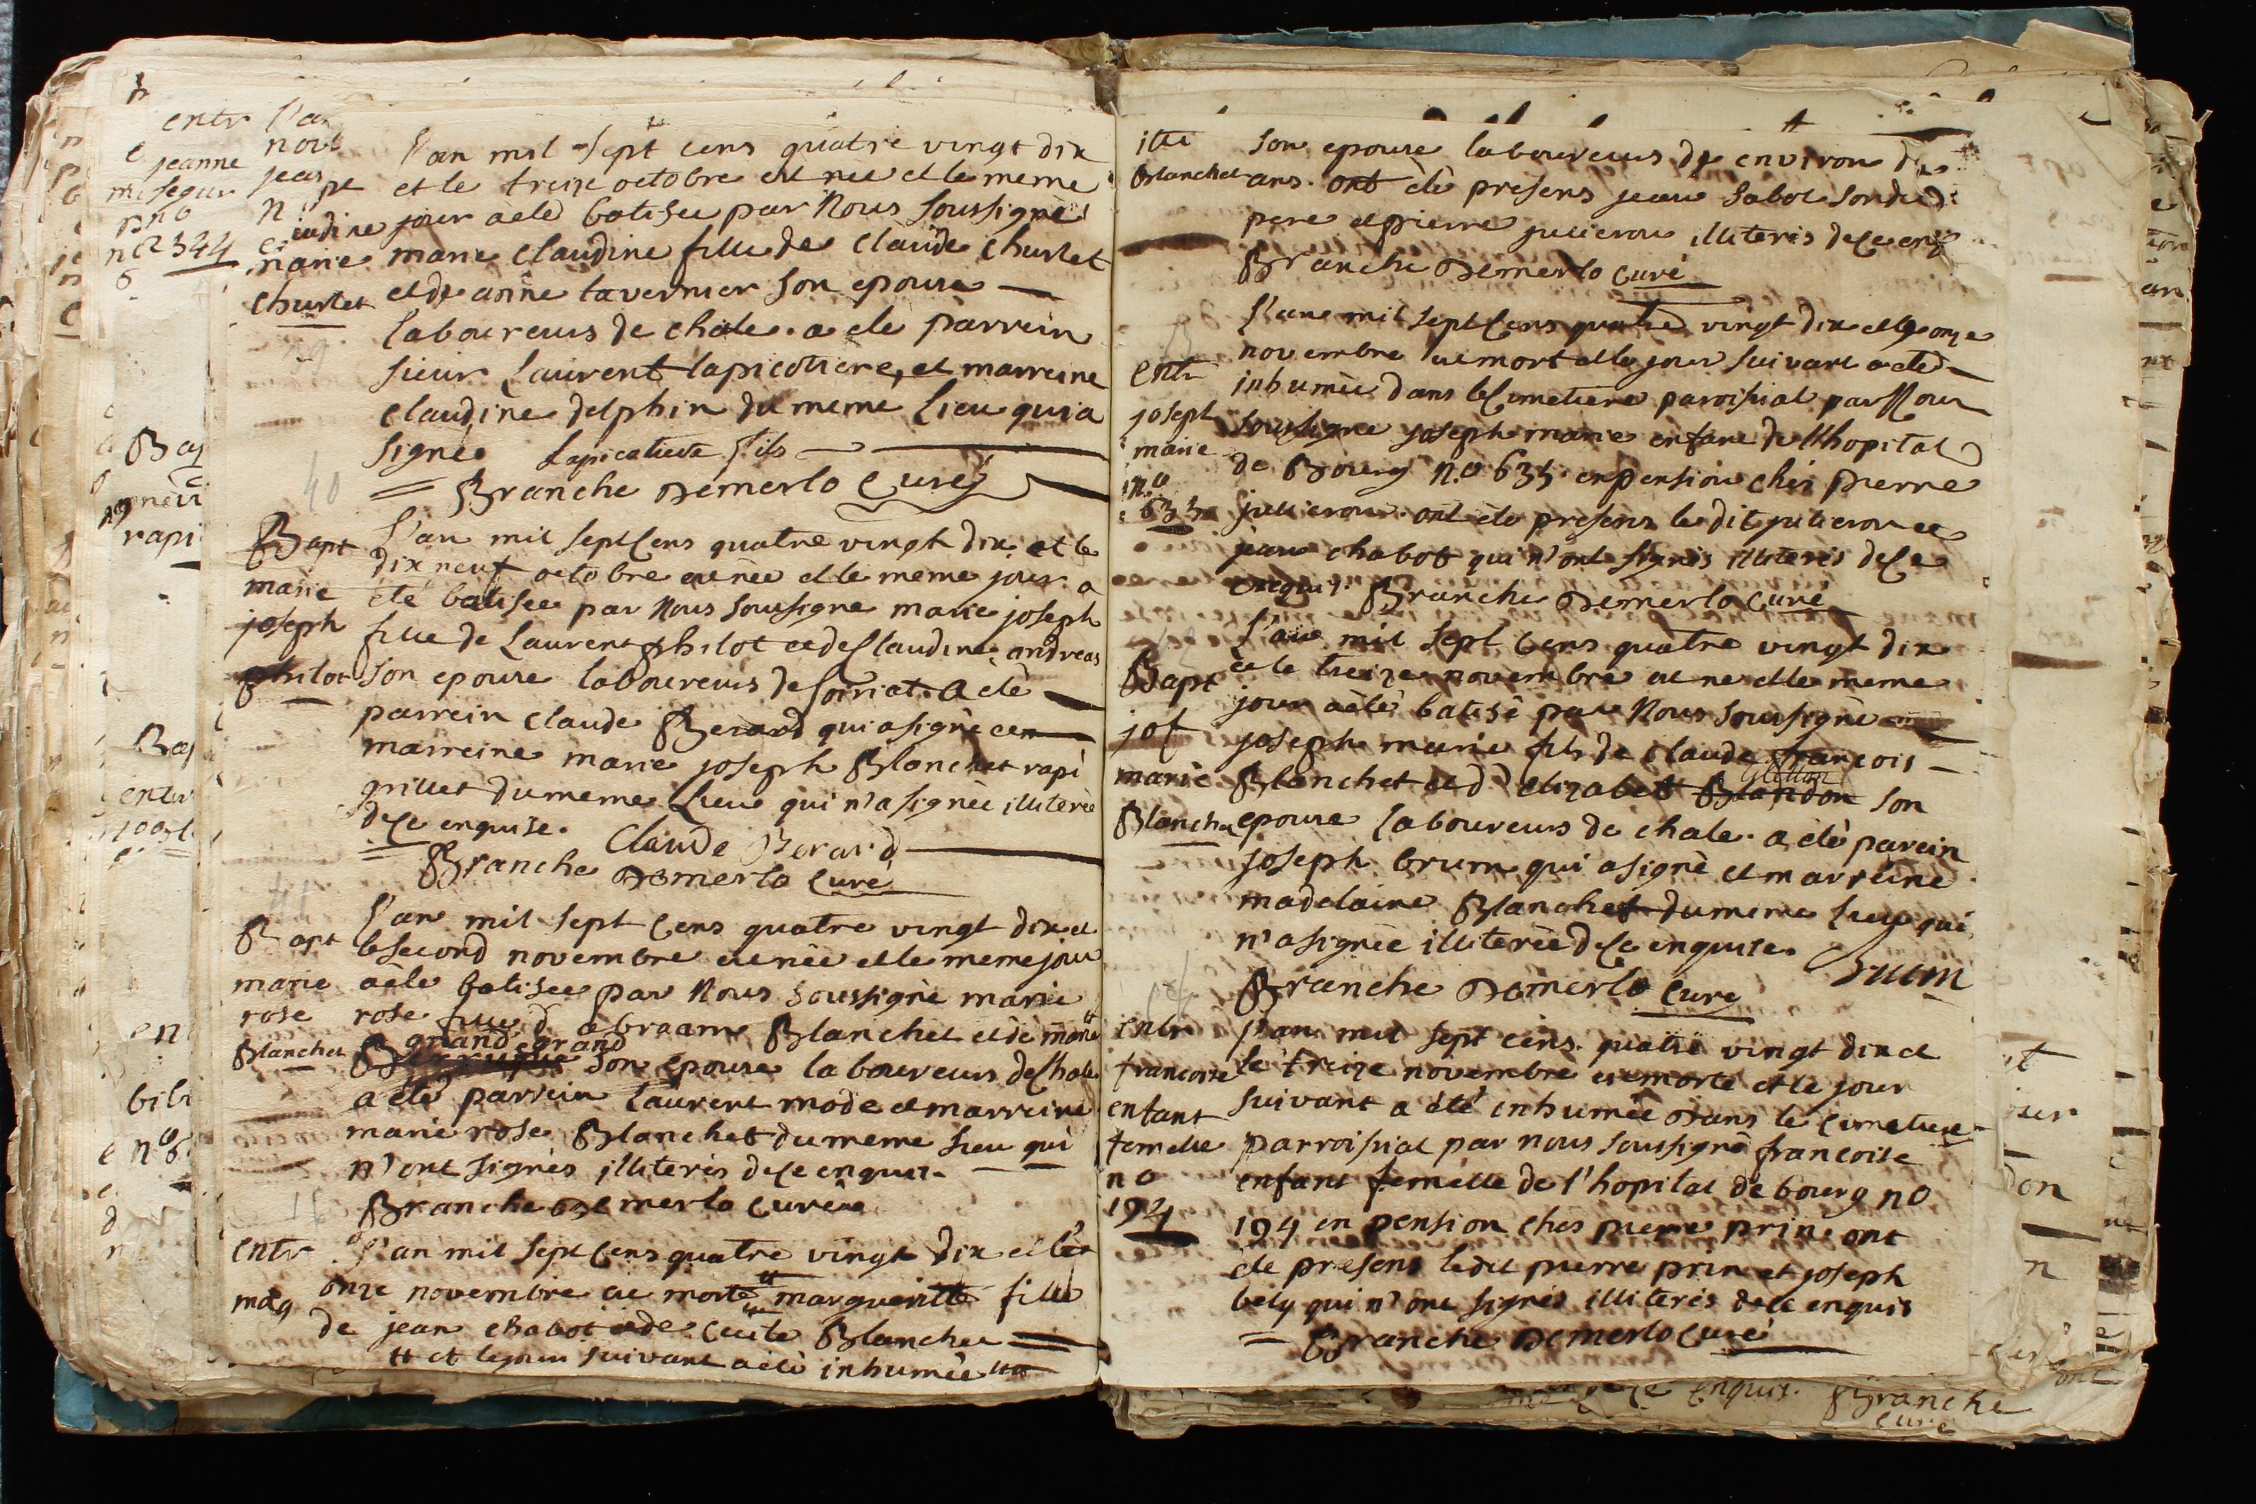 entr l'an
jeanne
segur
n° 2344
Bapt
rapi
entr
l'an mil sept cens quatre vingt dix
et le treize octobre est nee et le meme
jour a ete batisee par Nous soussigné
marie claudine fille de claude churlet
et de anne tavernier son epouse
laboureurs de chale. a ete parrein
sieur Laurent lapicotiere, et marreine
claudine delphin du meme Lieu qui a
signée Lapicotiere fils
Branche Demerlo Curé
claudine
marie
churlet
40
Bapt
marie
joseph
philot
L'an mil sept cens quatre vingt dix. et le
dix neuf octobre est née et le meme jour a
été batisee par Nous soussigné marie joseph
fille de Laurent philot et de Claudine andreas
son epouse laboureurs de soiriat. a été
parrein claude Berard qui a signé et
marreine marie joseph Blanchet rapi
grillet du meme Lieu qui n'a signée illiterée
de ce enquise. Claude Berard
Branche Demerlo curé
41
Bapt
marie
rose
Blanchet
l'an mil sept cens quatre vingt dix et
le second novembre est née et le meme jour
a éte batisee par Nous soussigné marie
rose fille d abraam Blanchet et de marie
grand grand
son epouse laboureurs de Chale
a été parrein laurent mode et marreine
marie rose Blanchet du meme lieu qui
n'ont signés illiterés de ce enquis.
Branche Demerlo curé
entr
mag
L'an mil sept cens quatre vingt dix et le
onze novembre est morte # marguerite fille
de jean chabot et de cecile Blanchet
# et le jour suivant a été inhumée
Blanchet
son epouse laboureurs de environ
ans. ont été presens jean sabot son dit
pere et pierre juilleron illiterés de ce enquis
Branche Demerlo curé
entr
joseph
marie
n.°
635
L'an mil sept cens quatre vingt dix et le onze
novembre est mort et le jour suivant a eté
inhumée dans le cimetiere paroisial par Nous
soussigné joseph marie enfant de l'hopital
de Bourg n.° 635. en pension chés pierre
juilleron. ont été presens le dit juilleron et
jean chabot qui n'ont signés illiterés de ce
enquis. Branche Demerlo curé
Bapt
jos
marie
Blanchet
L'an mil sept cens quatre vingt dix
et le treize novembre est né et le meme
jour a été batisé par Nous soussigné
joseph marie fils de claude françois
Blanchet et d' elizabet Blandon son
epouse laboureurs de chale. a été parein
joseph brum qui a signé et marreine
madelaine Blanchet du meme lieu qui
n'a signée illiterée de ce enquise.
Brum
Branche Demerlo curé
entr
francoise
enfant
femelle
n°
194
l'an mil sept cens quatre vingt dix et
le treize novembre est morte et le jour
suivant a été inhumée dans le cimetiere
parroisial par nous soussigné francoise
enfant femelle de l'hopital de bourg n°
194 en pension ches pierre prin. ont
été presens ledit pierre prin et joseph
bely qui n'ont signés illiterés de ce enquis
Branche Demerlo curé
enquis. Branche
curé